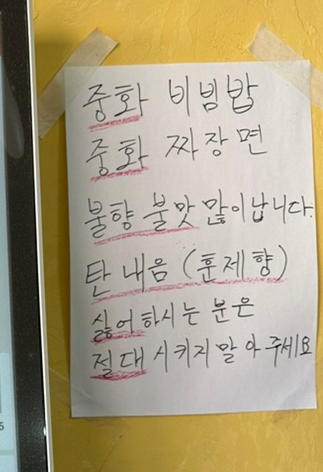 중화 비빔밥
중화 짜장면
불향 불맛 많이 납니다.
탄 내음 (훈제향)
싫어하시는 분은
절대 시키지 말아 주세요